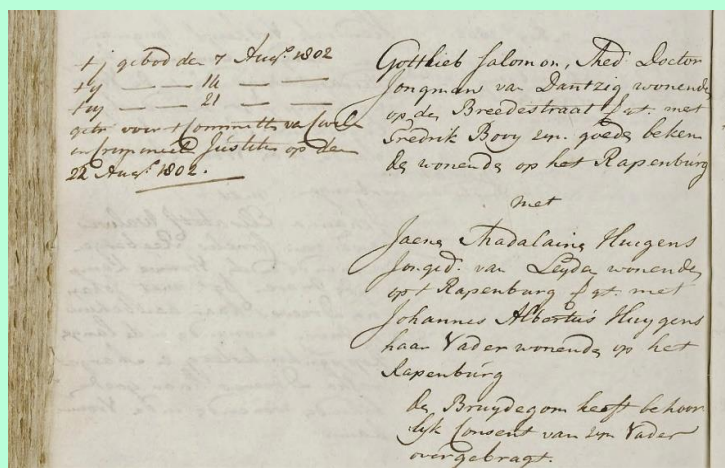 t j gebod den 7 Augs. 1802
t ij — — 14 — —
t iij — — 21 — —
getr. voor t Committe van Civile
en Crimineele Justitie op den
22 Augs. 1802.
Gottlieb Salomon, Med. Doctor
Jongman van Dantzig wonende
op de Breedestraat verg.t. met
Fredrik Bory zijn goede beken
de wonende op het Rapenburg
met
Jaene Madalaine Huigens
Jonged. van Leyden wonende
op t Rapenburg verg.t. met
Johannes Albertus Huygens
haar Vader wonende op het
Rapenburg
de Bruydegom heeft behoor
lijk Consent van zijn Vader
overgebragt.